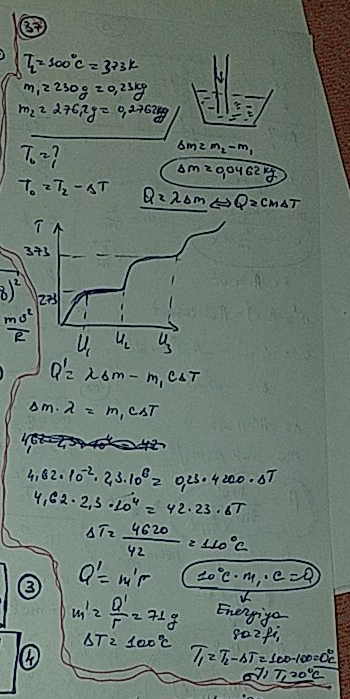 37
T₂ = 100°C = 373K
m₁ = 230g = 0,23kg
m₂ = 276,2g = 0,2762kg
T₀ = ?
T₀ = T₂ - ΔT
Δm = m₂ - m₁
Δm = 0,0462kg
Q = λΔm ⇔ Q = cmΔT
T
373
273
U₁ U₂ U₃
Q' = λΔm - m₁cΔT
Δm·λ = m₁cΔT
4,62·10⁻²·2,3·10⁶ = 0,23·4200·ΔT
4,62·2,3·10⁴ = 42·23·ΔT
ΔT = 4620/42 = 110°C
Q' = m'r
10°C·m₁·c = Q
m' = Q'/r = 71g
Energiya
sarfi
ΔT = 100°C
T₁ = T₂ - ΔT = 100-100 = 0°C
T₁ = 0°C
8)²
mv²
R
3
4